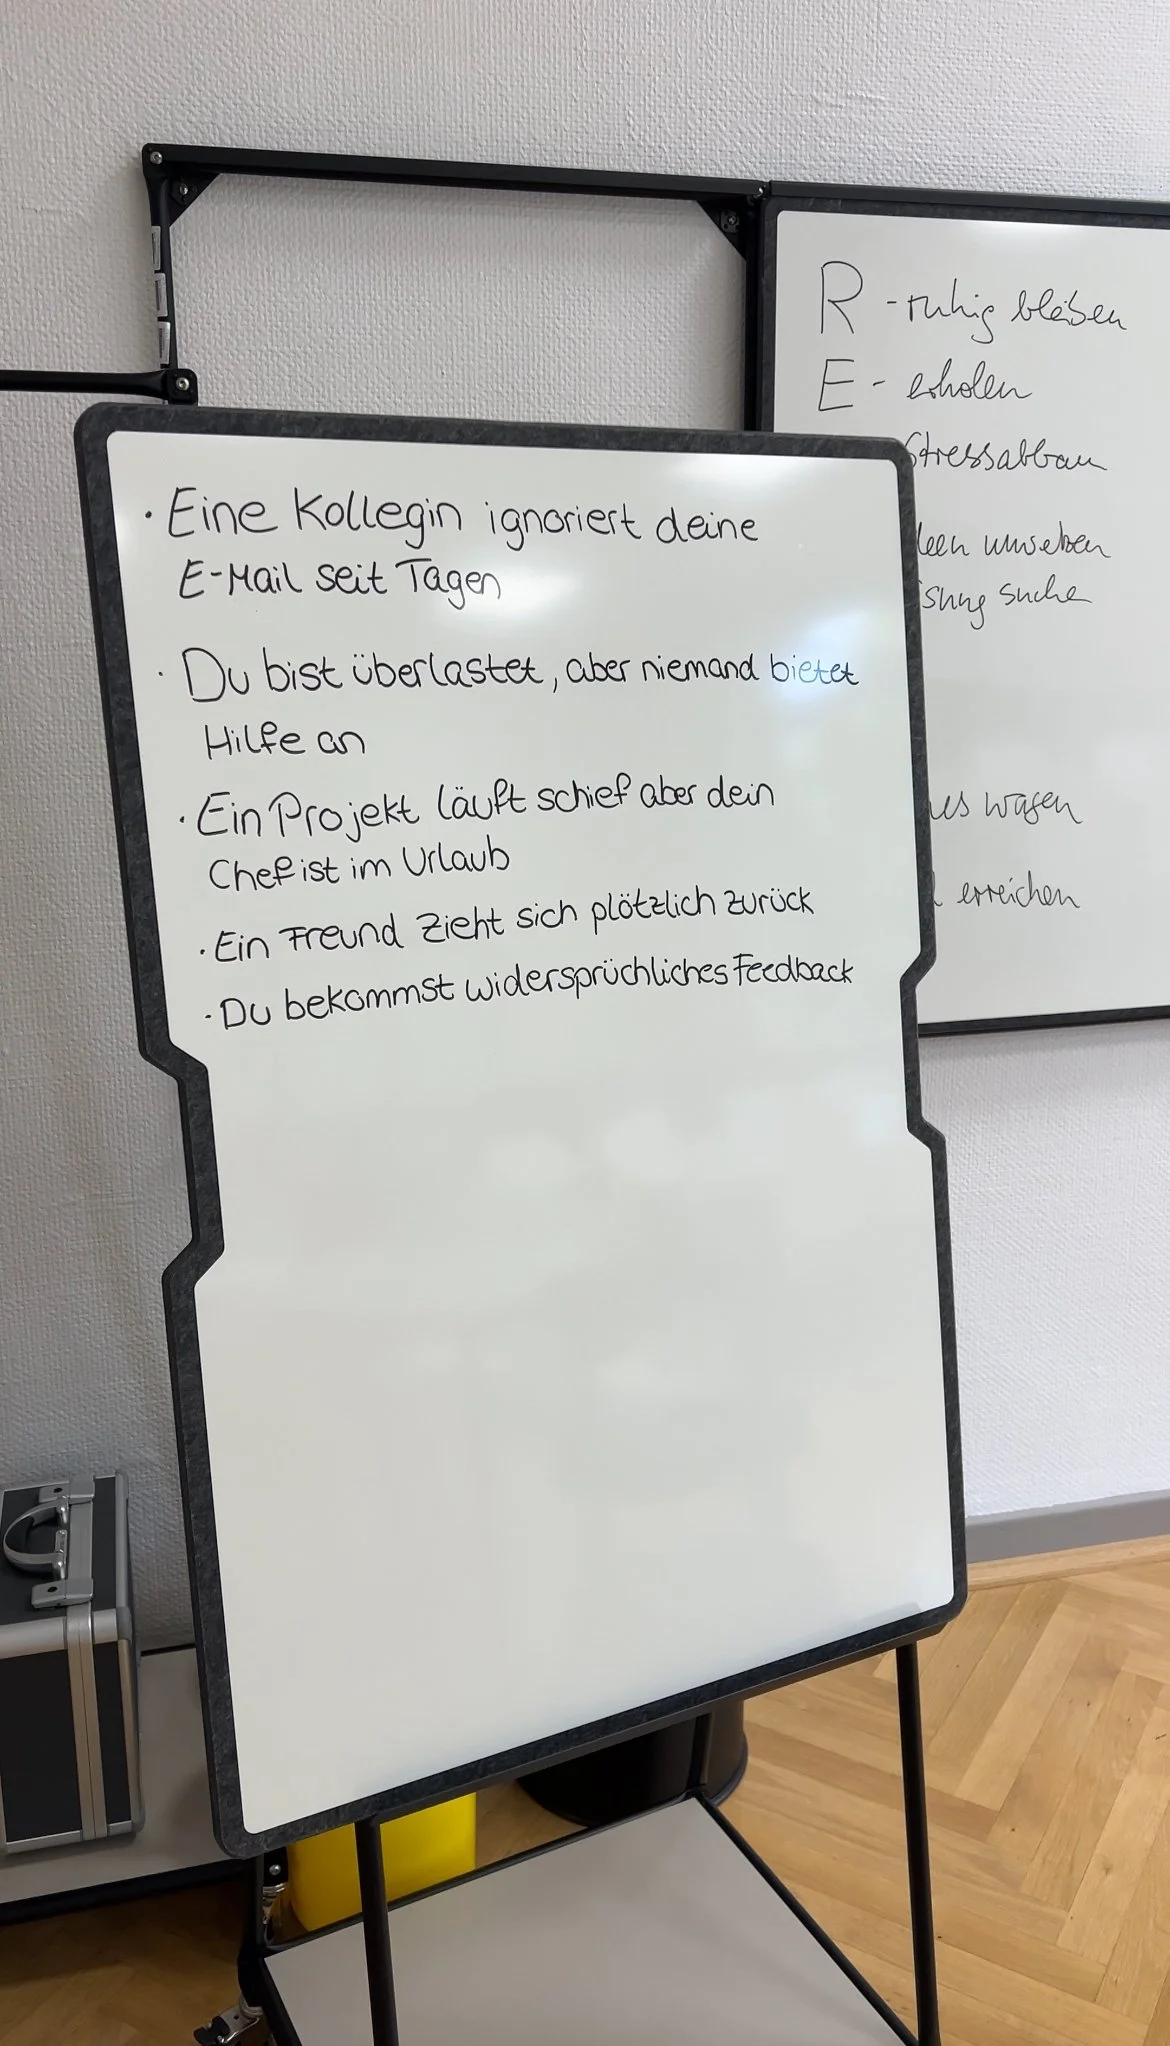 · Eine Kollegin ignoriert deine
E-Mail seit Tagen
· Du bist überlastet, aber niemand bietet
Hilfe an
· Ein Projekt läuft schief aber dein
Chef ist im Urlaub
· Ein Freund zieht sich plötzlich zurück
· Du bekommst widersprüchliches Feedback
R - ruhig bleiben
E - erholen
Stressabbau
suche
wagen
erreichen